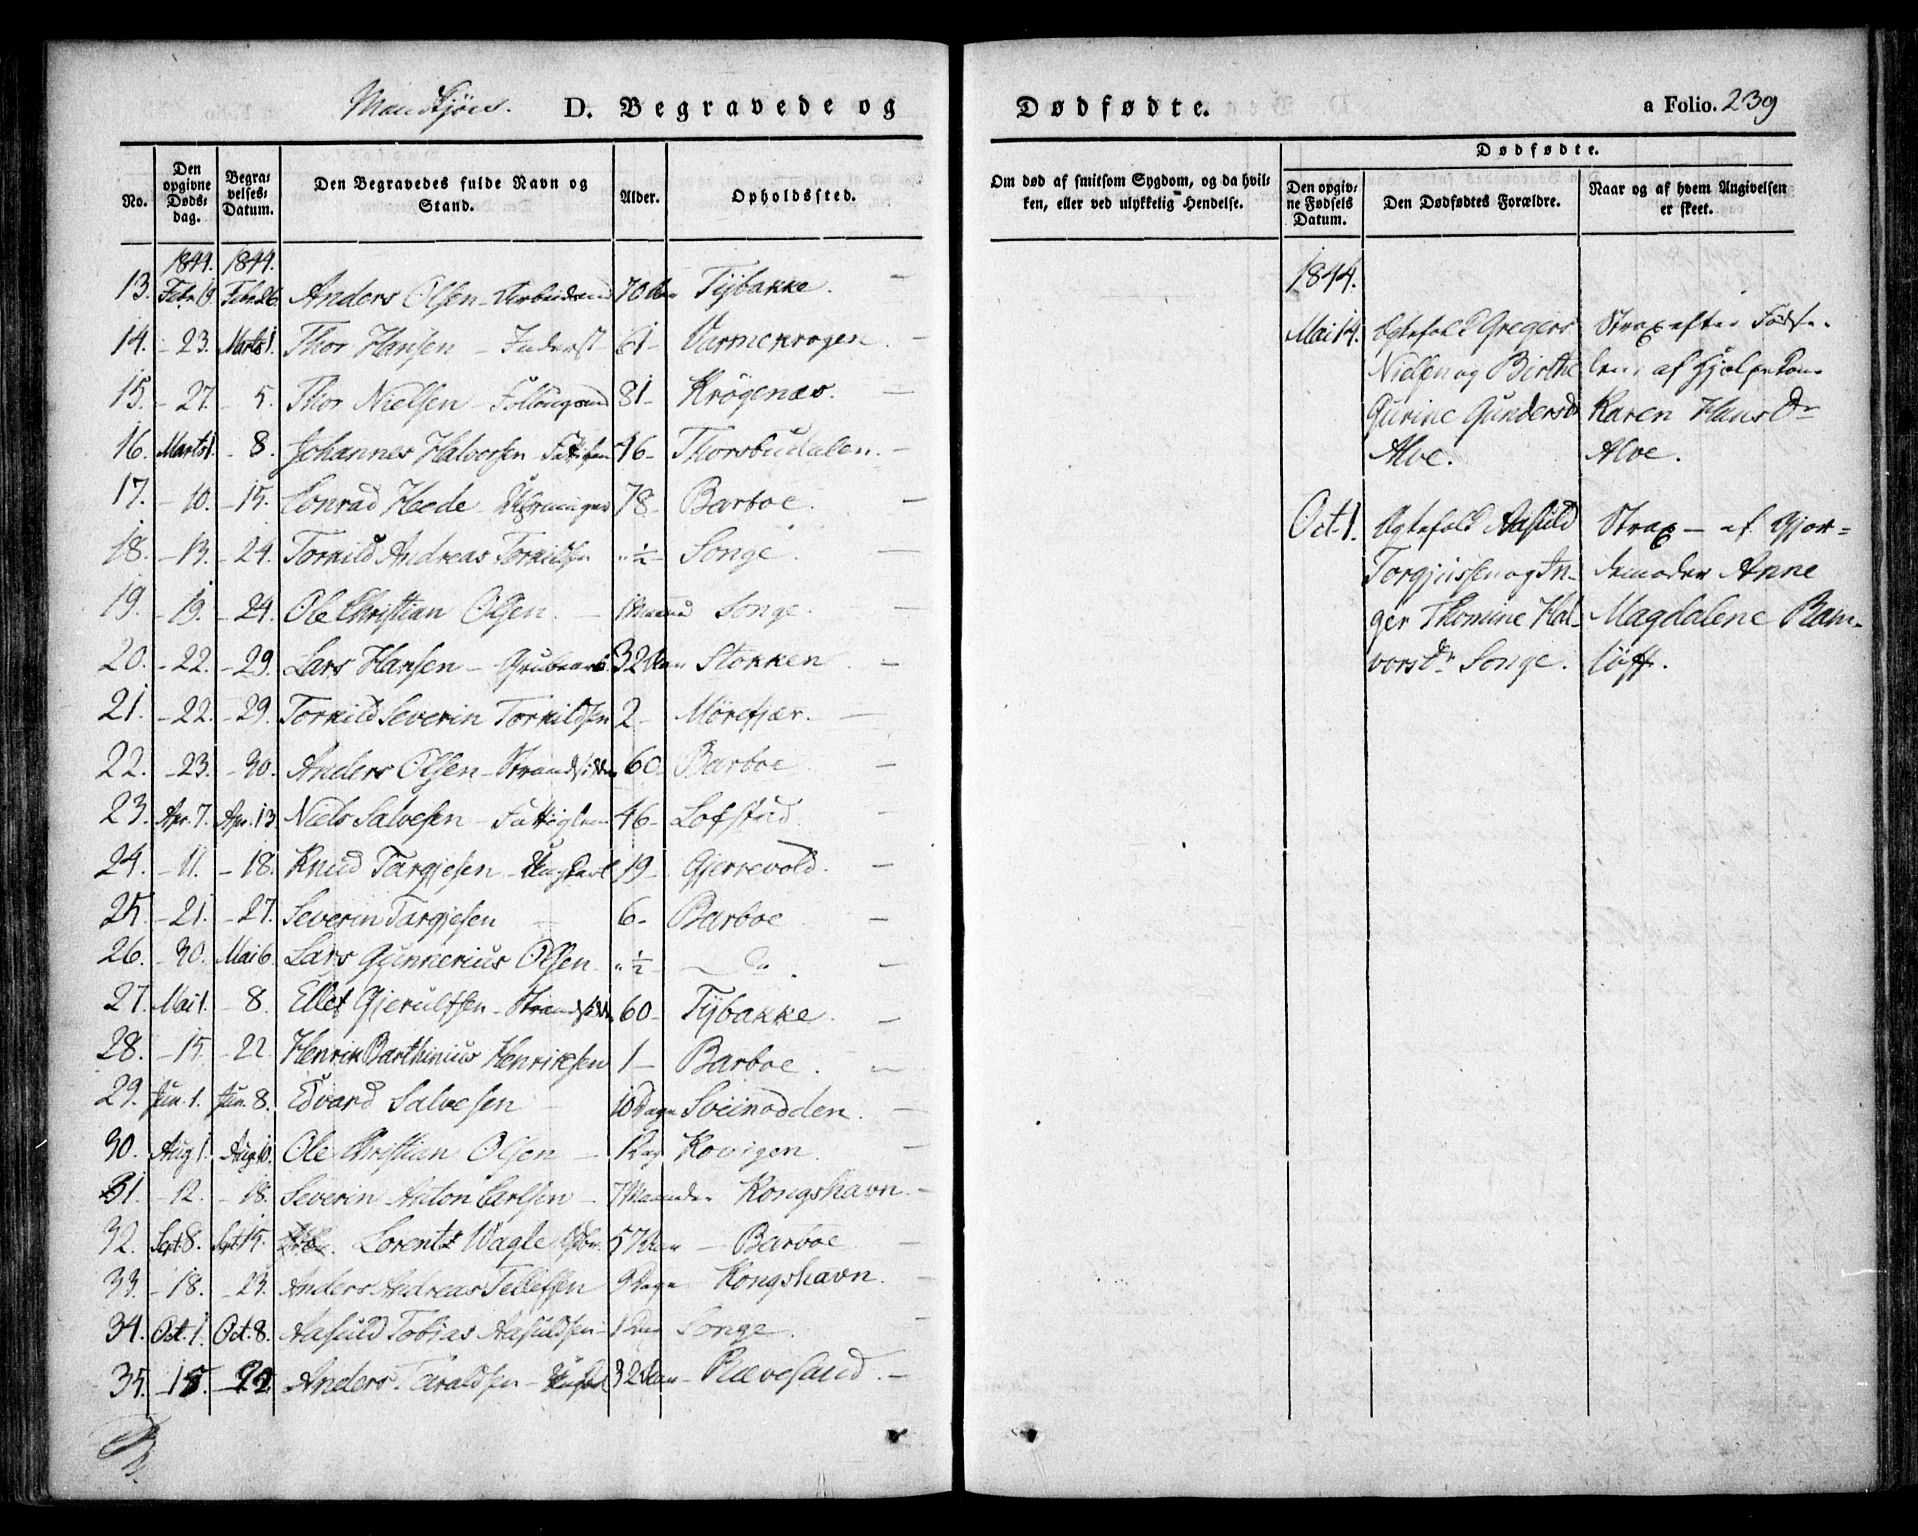 Mandkjøn. D. Begravede og
Dødfødte.
a Folio. 239
No.
Den opgivne Døds-dag.
Begra-velses-Datum.
Den Begravedes fulde Navn og Stand.
Alder.
Opholdssted.
Om død af smitsom Sygdom, og da hvil-
ken, eller ved ulykkelig Hendelse.
Dødfødte.
Den opgiv-ne Fødsels Datum.
Den Dødfødtes Forældre.
Naar og af hvem Angivelsen er skeet.
1844. 1844.
13. Febr 19. Febr 26. Anders Olsen - 70 Tybakke. -
14. - 23. Marts 1. Thor Hansen - Inderst 61 - Varmekrogen. -
15. - 27. - 5. Thor Nielsen - 81 - Krøgenæs. -
16. Marts 1. - 8. Johannes Halvorsen 46 - Thorsbudalen. -
17. - 10. - 15. Conrad Heede 78 - Barboe. -
18. - 13. - 24. Torkild Andreas Torkildsen " ½ - Songe. -
19. - 19. - 24. Ole Christian Olsen. - 1 Maaned Songe. -
20. - 22. - 29. Lars Hansen - 32 Aar Stokken. -
21. - 22. - 29. Torkild Severin Torkildsen 2 - Mørefjær. -
22. - 23. - 30. Anders Olsen - Strandsidder 60 - Barboe -
23. Apr. 7. Apr. 13 Niels Salvesen - Fattiglem 46 - Lofstud -
24. - 11. - 18. Knud Targjesen - Ungkarl 19 - Gjerrevold. -
25. - 21. - 27. Severin Targjesen 6 - Barboe -
26. - 30. Mai 6. Lars Gunnerius Olsen " ½ - do. -
27. Mai 1. - 8. Ellef Gjerulfsen - Strandsidder 60 - Tybakke. -
28. - 15. - 22. Henrik Barthinius Henriksen 1 - Barboe. -
29. Jun. 1. Jun. 8. Edvard Salvesen - 10 Dage Sveinodden. -
30. Aug 1. Aug 10. Ole Christian Olsen - Kovigen. -
31. - 12. - 18. Severin Anton Carlsen - 7 Maaneder Kongshavn. -
32. Sept. 8. Sept. 15. Lorentz Wagle 57 Aar - Barboe -
33. - 18. - 23. Anders Andreas Tellefsen 9 Dage Kongshavn. -
34. Oct. 1. Oct. 8. Aasuld Tobias Aasuldsen - 1 Dag Songe. -
35. - 15. - 22. Anders Taraldsen - Ungkarl 32 Aar - Rævesand. -
1844.
Mai 14. Ægtefolk Gregers
Nielsen og Birthe
Gurine Gundersdr
Alve.
Strax efter Fødse-
len, af Hjelpekone
Karen Hansdr
Alve.
Oct. 1. Ægtefolk Aasuld
Torgjussen og In-
ger Thomine Hal-
vorsdr Songe.
Strax - af Gjor-
demoder Anne
Magdalene Ram-
løff.